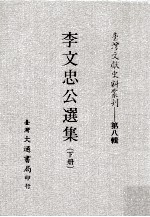 臺灣文獻史料叢刊——第八輯
李文忠公選集
(下冊)
臺灣大通書局印行